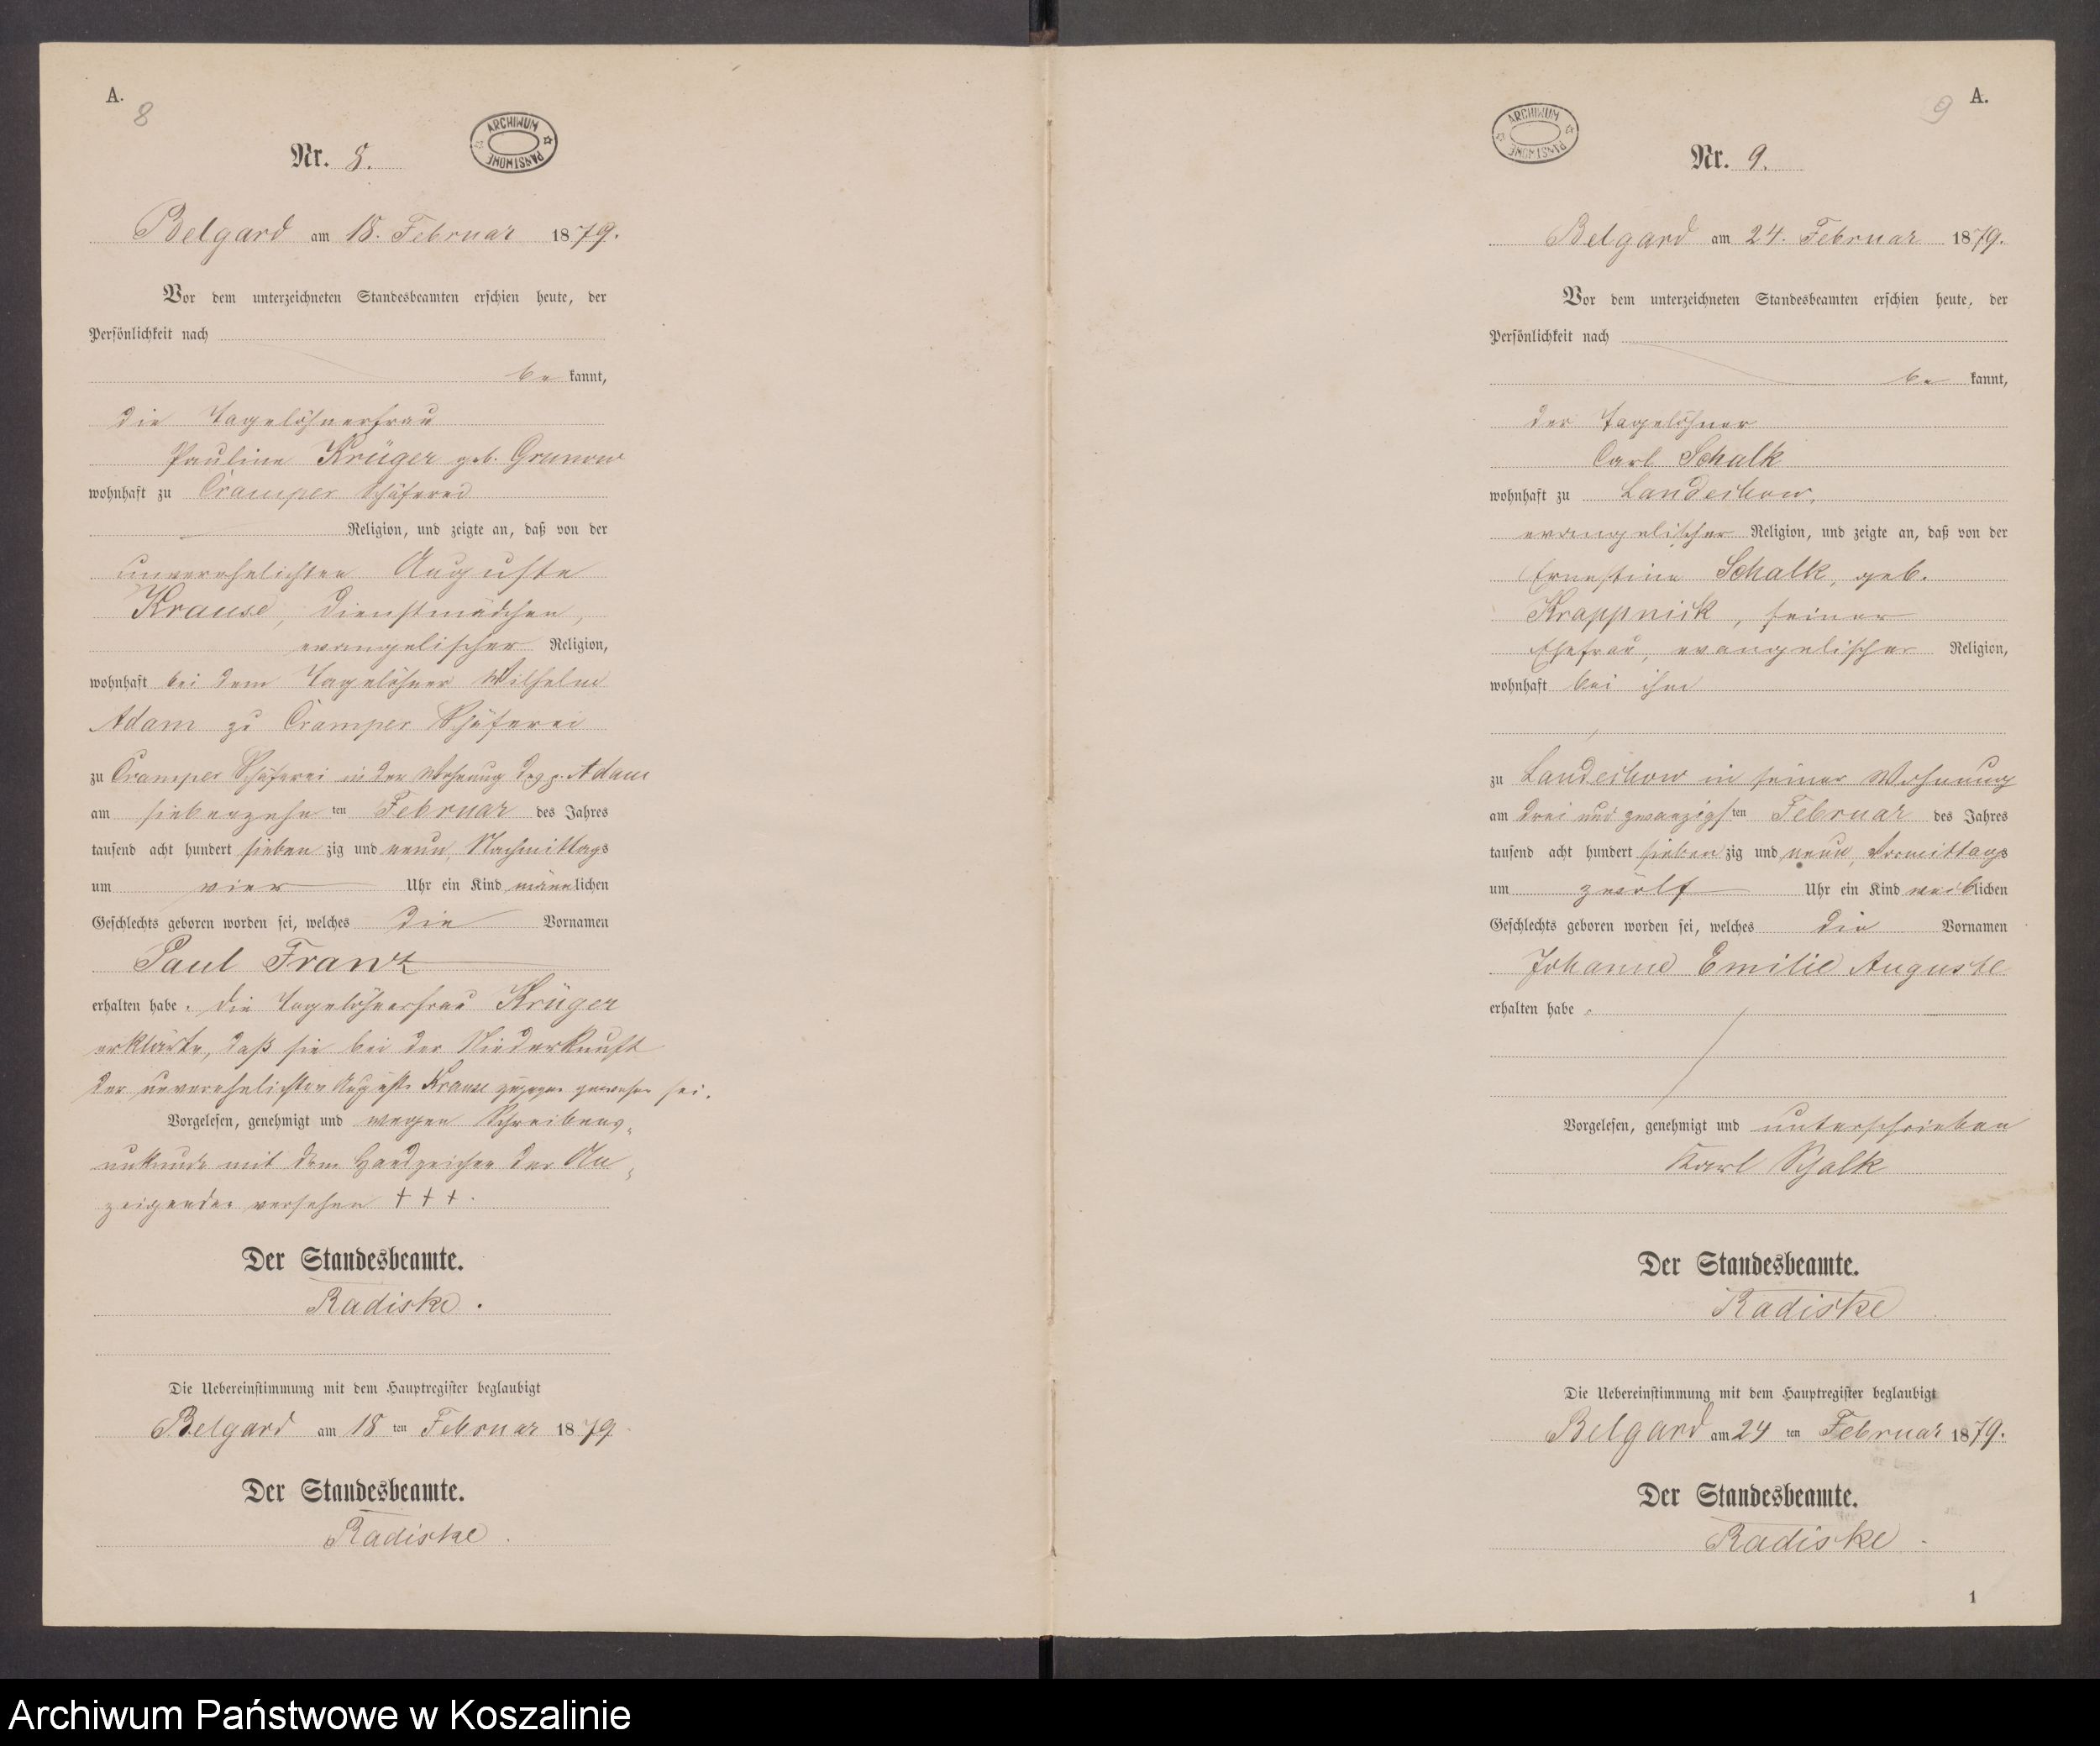 A.
8
Nr. 8.
ARCHIWUM PAŃSTWOWE
Belgard am 18. Februar 1879.
Vor dem unterzeichneten Standesbeamten erschien heute, der
Persönlichkeit nach
be kannt,
die Tagelöhnerfrau
Pauline Krüger geb. Grunow
wohnhaft zu Cramper Schäferei
Religion, und zeigte an, daß von der
unverehelichten Auguste
Krause, Dienstmädchen,
evangelischer Religion,
wohnhaft bei dem Tagelöhner Wilhelm
Adam zu Cramper Schäferei
zu Cramper Schäferei in der Wohnung des p. Adam
am siebenzehn ten Februar des Jahres
tausend acht hundert sieben zig und neun, Nachmittags
um vier Uhr ein Kind männlichen
Geschlechts geboren worden sei, welches die Vornamen
Paul Franz
erhalten habe. Die Tagelöhnerfrau Krüger
erklärte, daß sie bei der Niederkunft
der unverehelichten Auguste Krause zugegen gewesen sei.
Vorgelesen, genehmigt und wegen Schreibens-
unkunde mit dem Handzeichen der An-
zeigenden versehen + + +.
Der Standesbeamte.
Radiske.
Die Uebereinstimmung mit dem Hauptregister beglaubigt
Belgard am 18 ten Februar 1879
Der Standesbeamte.
Radiske.
A.
9
ARCHIWUM PAŃSTWOWE
Nr. 9.
Belgard am 24. Februar 1879.
Vor dem unterzeichneten Standesbeamten erschien heute, der
Persönlichkeit nach
be kannt,
der Tagelöhner
Carl Schalk
wohnhaft zu Landechow,
evangelischer Religion, und zeigte an, daß von der
Ernestine Schalk, geb.
Krappnick, seiner
Ehefrau, evangelischer Religion,
wohnhaft bei ihm
zu Landechow in seiner Wohnung
am drei und zwanzigsten Februar des Jahres
tausend acht hundert sieben zig und neun, Vormittags
um zwölf Uhr ein Kind weiblichen
Geschlechts geboren worden sei, welches die Vornamen
Johanne Emilie Auguste
erhalten habe.
Vorgelesen, genehmigt und unterschrieben
Karl Schalk
Der Standesbeamte.
Radiske
Die Uebereinstimmung mit dem Hauptregister beglaubigt
Belgard am 24 ten Februar 1879.
Der Standesbeamte.
Radiske.
1
Archiwum Państwowe w Koszalinie